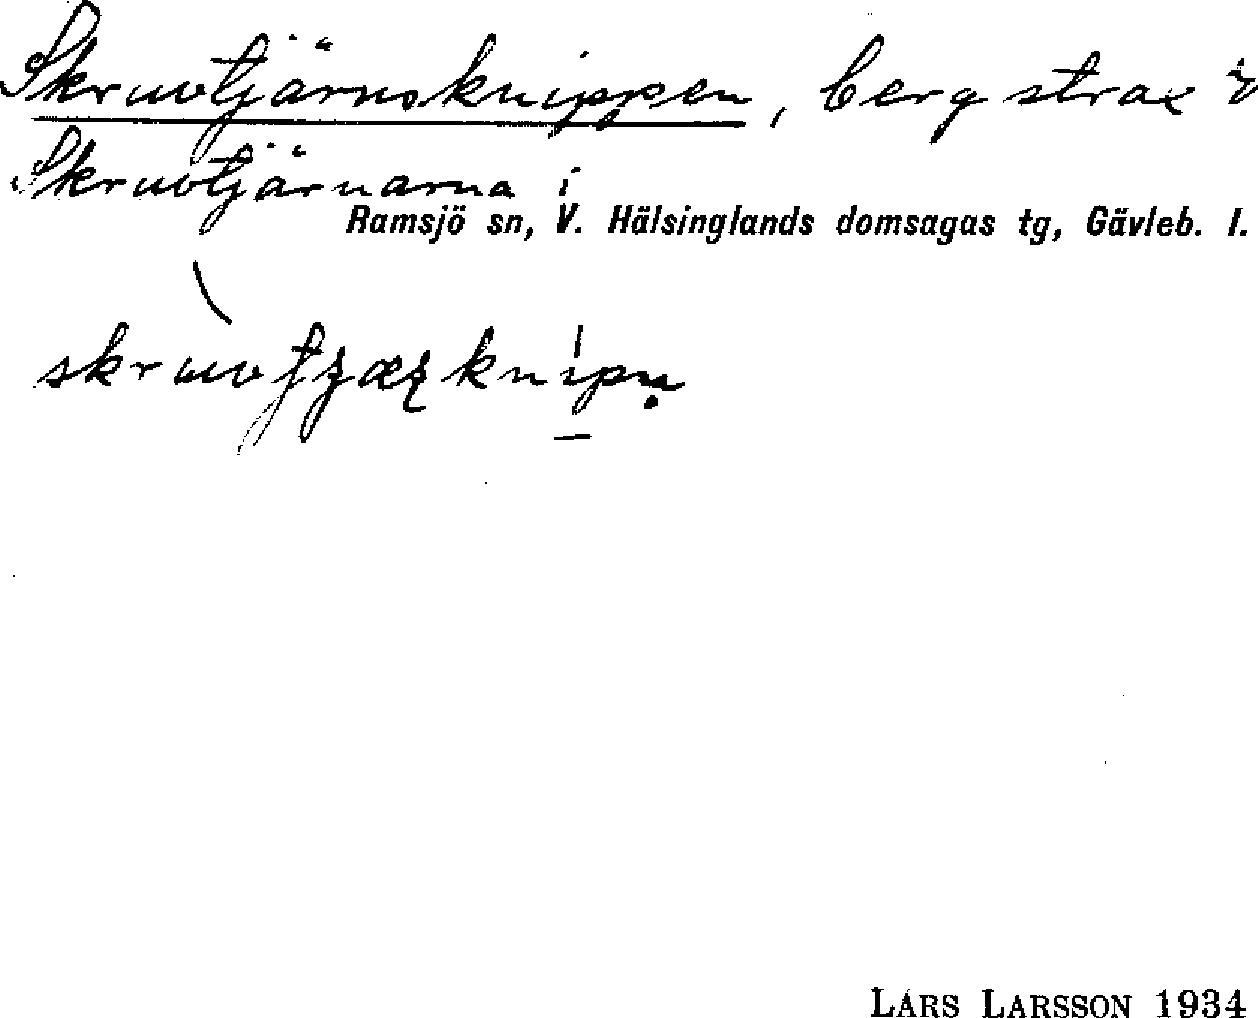 Skruvtjärnsknippen, berg strax
Skruvtjärnarna i
Ramsjö sn, V. Hälsinglands domsagas tg, Gävleb. l.
LARS LARSSON 1934